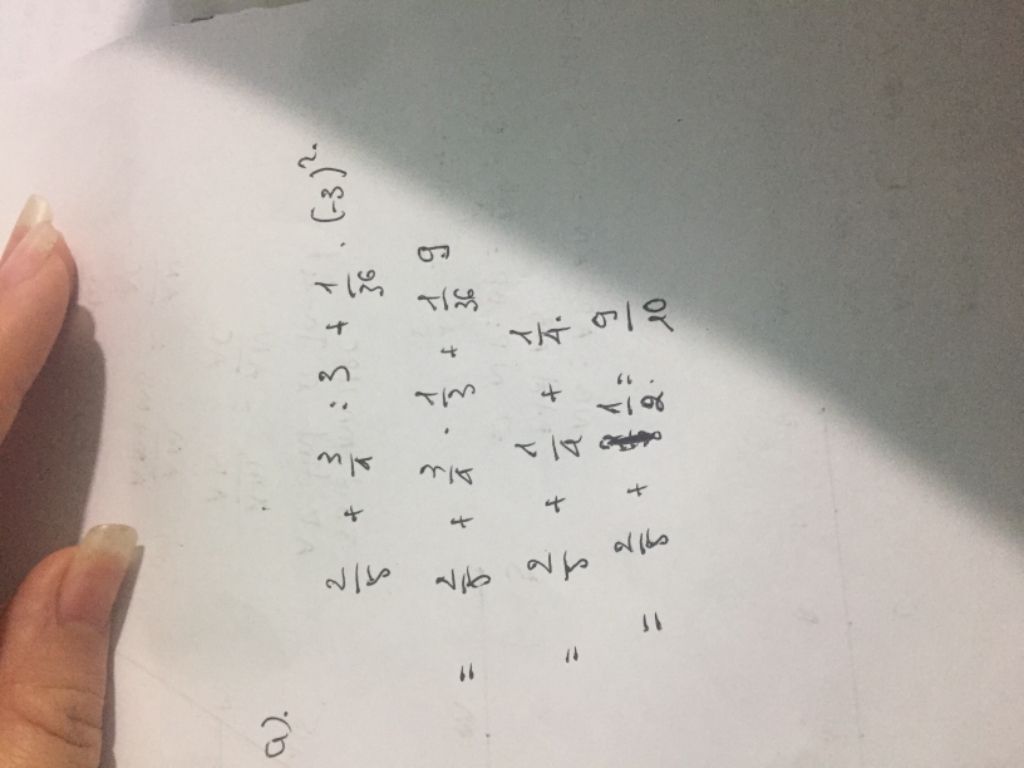 a).
2/5 + 3/4 : 3 + 1/36 . (-3)².
= 2/5 + 3/4 . 1/3 + 1/36 9
= 2/5 + 1/4 + 1/4.
= 2/5 + 1/2. = 9/10